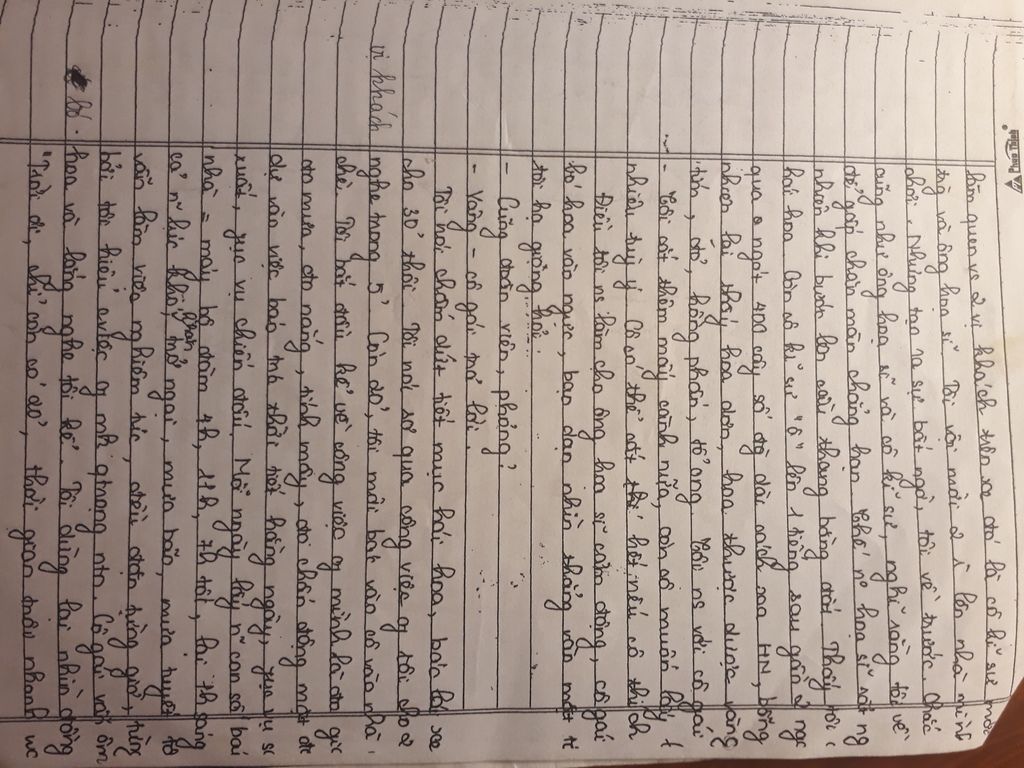 hồn quen vs 2 vị khách trên xe đó là cô kĩ sư mới
trg và ông họa sĩ. Tôi vồn mời 2 ì lên nhà mình
chơi. Nhưng tạo ra sự bất ngờ, tôi về trước. Chắc
cũng như ông họa sĩ và cô kĩ sư, nghĩ rằng tôi về
để gấp chăn màn chẳng hạn. Thế nê họa sĩ với ng
nhiên khi bước lên cầu thang bằng đất. Thấy tôi
hái hoa. Còn cô kĩ sư "ô" lên 1 tiếng sau gần 2 ng
qua ngót 400 cây số đg dài cách xa HN, bỗng
nhiên lại thấy hoa dơn, hoa thược dược vàng
tím, đỏ, hồng phấn, tổ ong. Tôi ns với cô gái
- Tôi cắt thêm mấy cành nữa, còn cô muốn lấy
nhiêu tùy ý. Cô có thể cắt hết nếu cô thích
Điều tôi ns làm cho ông họa sĩ cảm động, cô gái
bó hoa vào ngực, bạo dạn nhìn thẳng vào mắt t
tôi hạ giọng hỏi:
- Cũng đoàn viên, phỏng?
- Vâng - cô gái trả lời.
Tôi nói chấm dứt tiết mục hái hoa, bác lái xe
cho 30' thôi. Tôi nói sơ qua công việc của tôi cho 2
vị khách
nghe trong 5'. Còn đó, tôi mời bác vào cô vào nhà
chè. Tôi bắt đầu kể về công việc của mình là đo gió
đo mưa, đo nắng, tính mây, đo chấn động mặt đt
dự vào việc báo trc thời tiết hằng ngày, phục vụ s
xuất, phục vụ chiến đấu. Mỗi ngày lấy n~ con số bá
nhà = máy bộ đàm 4h, 11h, 7h tối, lại 1h sáng
có n~ lúc khó khăn, trở ngại, mưa bão, mưa tuyết tô
vẫn làm việc nghiêm túc, đều đặn từng giờ, từng
bởi tôi hiểu được cv mk qtrọng ntn. Cô gái vẫn ôm
bó
hoa và lắng nghe tôi kể. Tôi dừng lại nhìn đồng
"Trời ơi, chỉ còn có 5', thời gian trôi nhanh